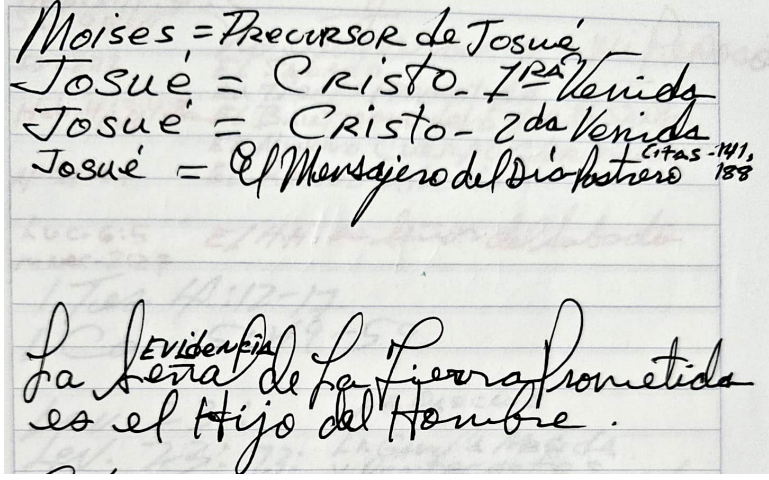 Moises = Precursor de Josué
Josué = Cristo - 1RA Venida
Josué = Cristo - 2da Venida
Josué = El Mensajero del Día Postrero Citas - 141, 188
Evidencia
La Señal de La Tierra Prometida
es el Hijo del Hombre.